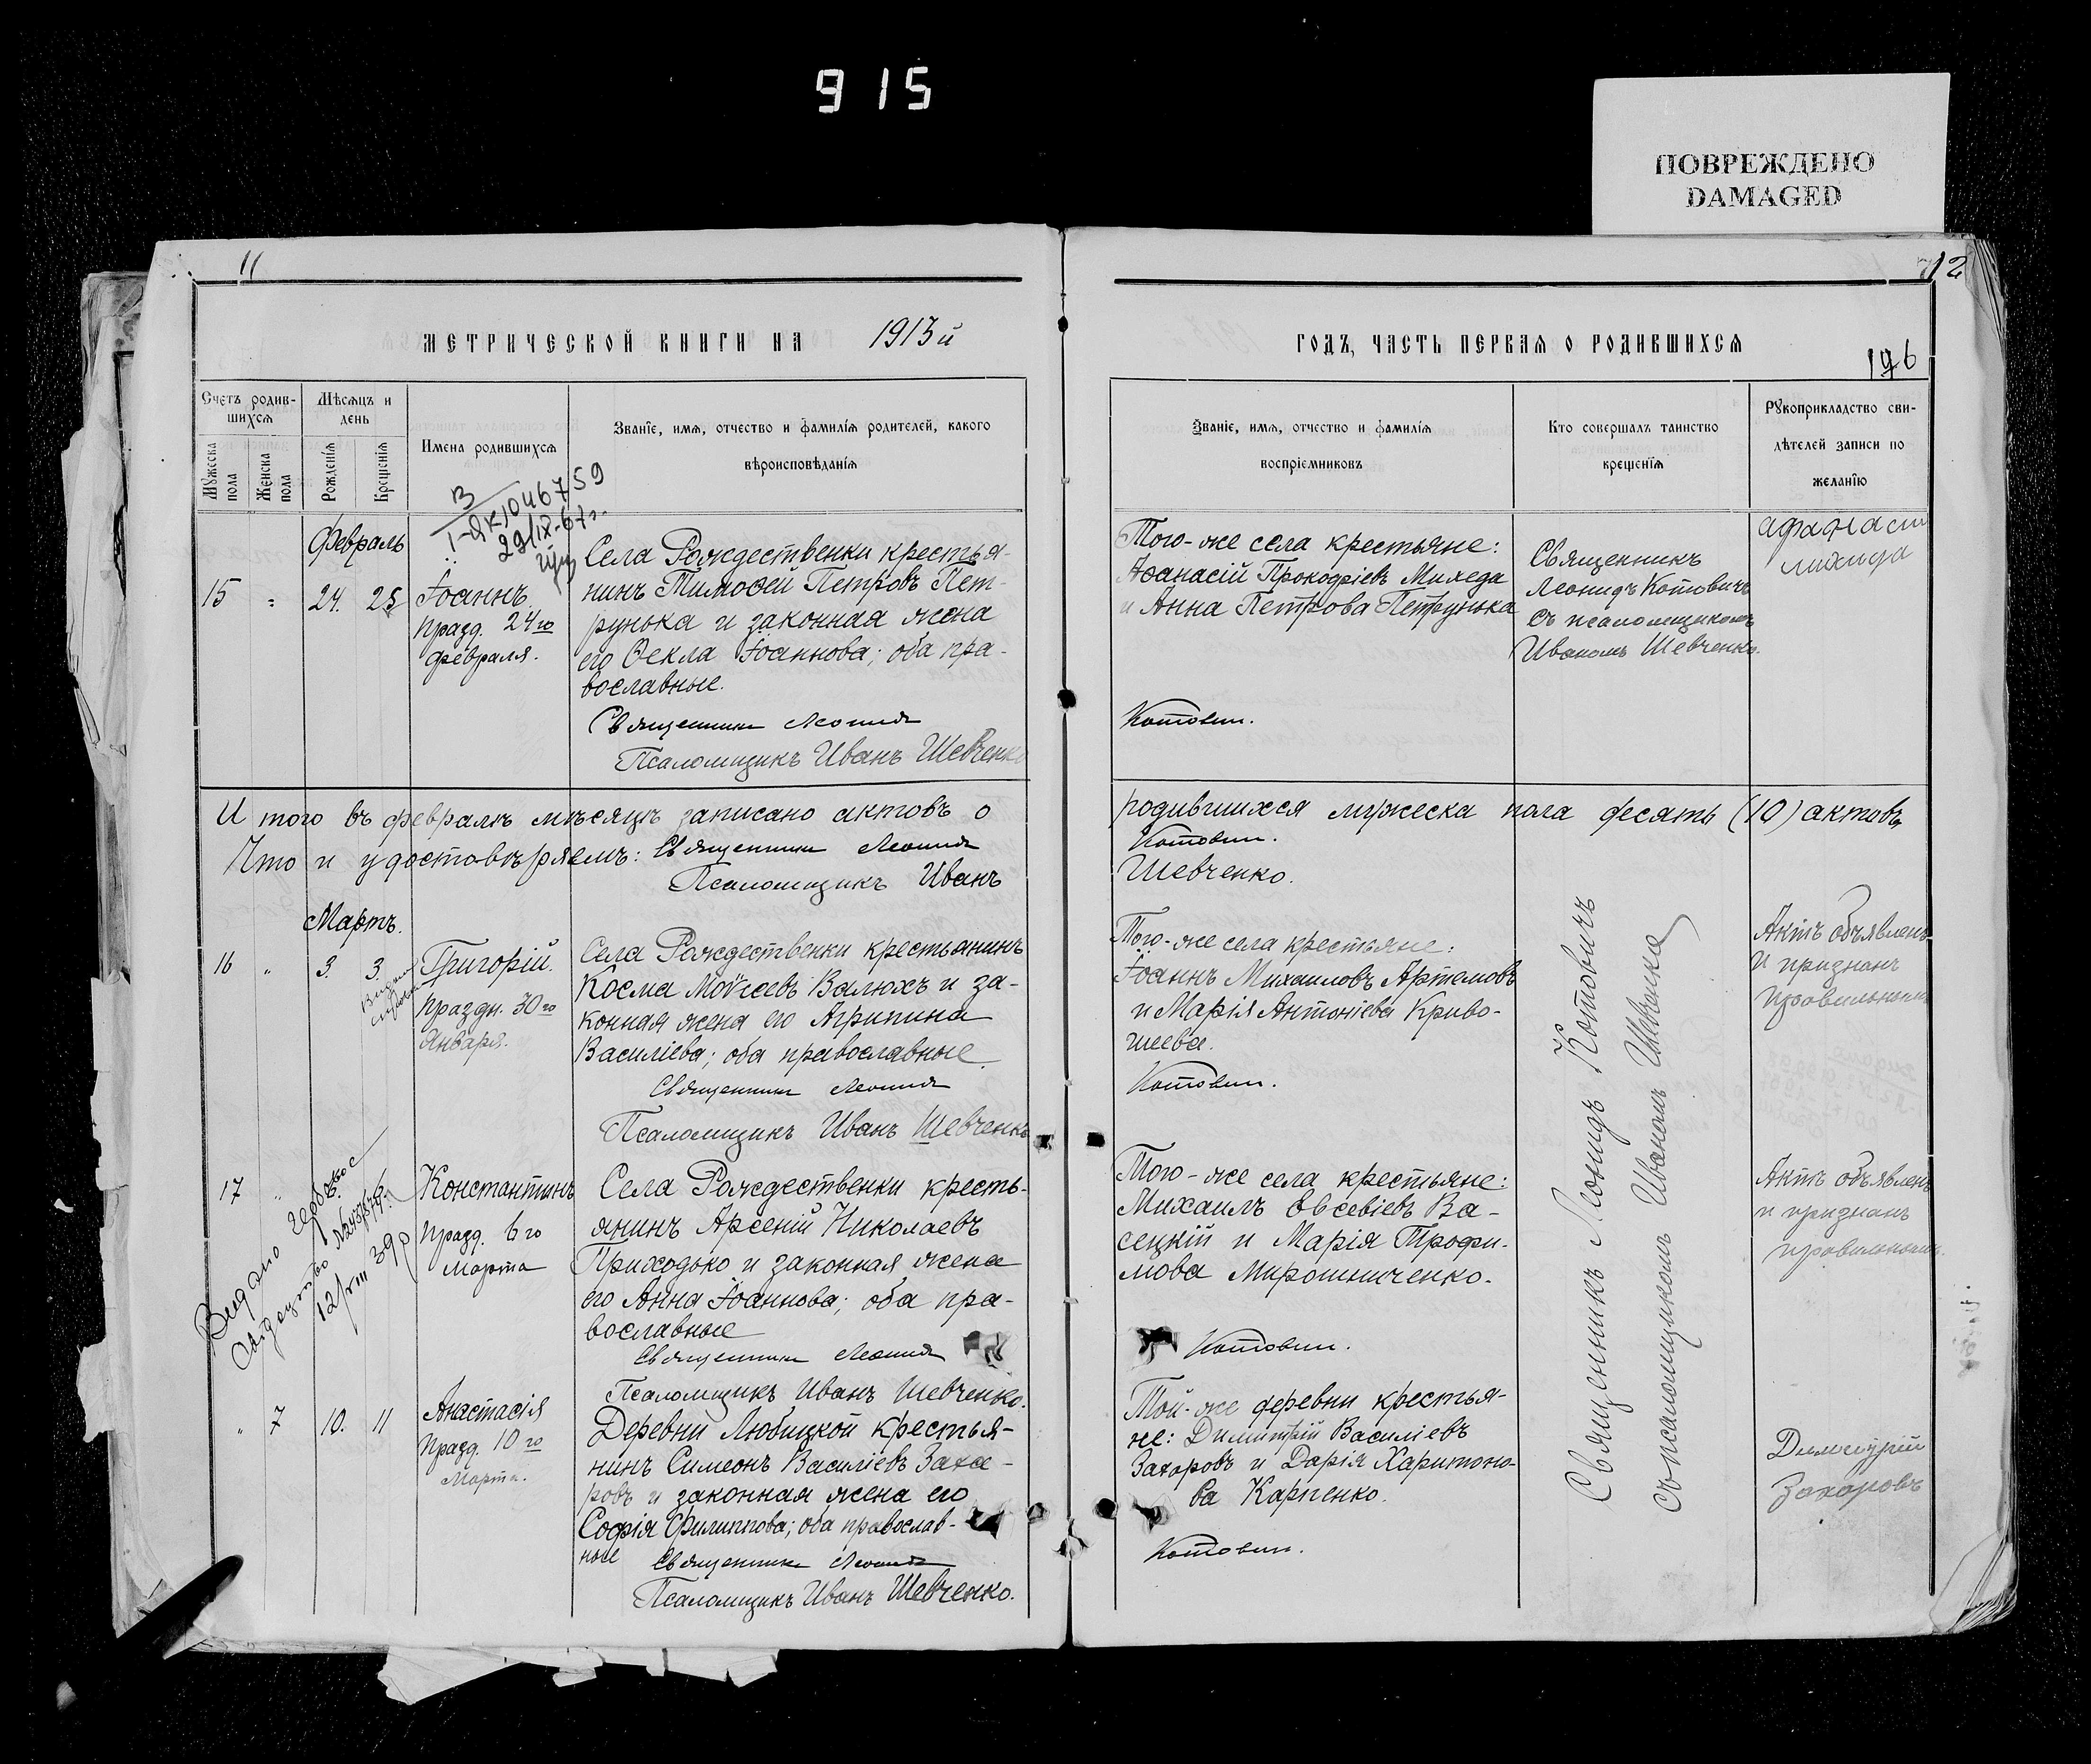 915
ПОВРЕЖДЕНО
DAMAGED
11
12
МЕТРИЧЕСКОЙ КНИГИ НА 1913й
ГОДЪ, ЧАСТЬ ПЕРВАЯ О РОДИВШИХСЯ
196
Счетъ родив-
шихся
Мѣсяцъ и
день
Мужеска
пола
Женска
пола
Рожденія
Крещенія
Имена родившихся
Званіе, имя, отчество и фамилія родителей, какого
вѣроисповѣданія
Званіе, имя, отчество и фамилія
воспріемниковъ
Кто совершалъ таинство
крещенія
Рукоприкладство сви-
дѣтелей записи по
желанію
1046759
29/IX-67г.
Февраль
15 " 24. 25
Іоаннъ.
празд. 24го
февраля.
Села Рождественки крестья-
нинъ Тимоѳей Петровъ Пет-
рунька и законная жена
его Ѳекла Іоаннова; оба пра-
вославные.
Священникъ Леонидъ
Псаломщикъ Иванъ Шевченко
Того-же села крестьяне:
Аѳанасій Прокофіевъ Михеда
и Анна Петрова Петрунька
Котович.
Священникъ
Леонидъ Котовичъ
съ псаломщикомъ
Иваномъ Шевченко.
Афанасій
Михида
И того въ февралѣ мѣсяцѣ записано актовъ о родившихся мужеска пола десять (10) актовъ
Что и удостовѣряемъ: Священникъ Леонидъ Котович.
Псаломщикъ Иванъ Шевченко.
Мартъ.
16 " 3. 3
Григорій.
праздн. 30го
Января.
Села Рождественки крестьянинъ
Косма Моѵсеевъ Валюхъ и за-
конная жена его Агрипина
Василіева; оба православные.
Священникъ Леонидъ
Псаломщикъ Иванъ Шевченко
Того-же села крестьяне:
Іоаннъ Михаиловъ Артемовъ
и Марія Антоніева Криво-
шеева.
Котович.
Актъ объявленъ
и признанъ
правильнымъ
Священникъ Леонидъ Котовичъ
съ псаломщикомъ Иваномъ Шевченко
17 "
Видано
свідецтво
12/VIII 39р
Константинъ
празд. 6го
Марта
Села Рождественки кресть-
янинъ Арсеній Николаевъ
Приходько и законная жена
его Анна Іоаннова; оба пра-
вославные
Священникъ Леонидъ
Псаломщикъ Иванъ Шевченко.
Того-же села крестьяне:
Михаилъ Евсевіевъ Ва-
сецкій и Марія Трофи-
мова Мирошниченко.
Котович.
Актъ объявленъ
и признанъ
правильнымъ.
" 7 10. 11
Анастасія
празд. 10го
Марта.
Деревни Любицкой крестья-
нинъ Симеонъ Василіевъ Заха-
ровъ и законная жена его
Софія Филиппова; оба православ-
ные
Священникъ Леонидъ
Псаломщикъ Иванъ Шевченко.
Той-же деревни крестья-
не: Димитрій Василіевъ
Захаровъ и Дарія Харитоно-
ва Карпенко.
Котович.
Димитрій
Захаровъ